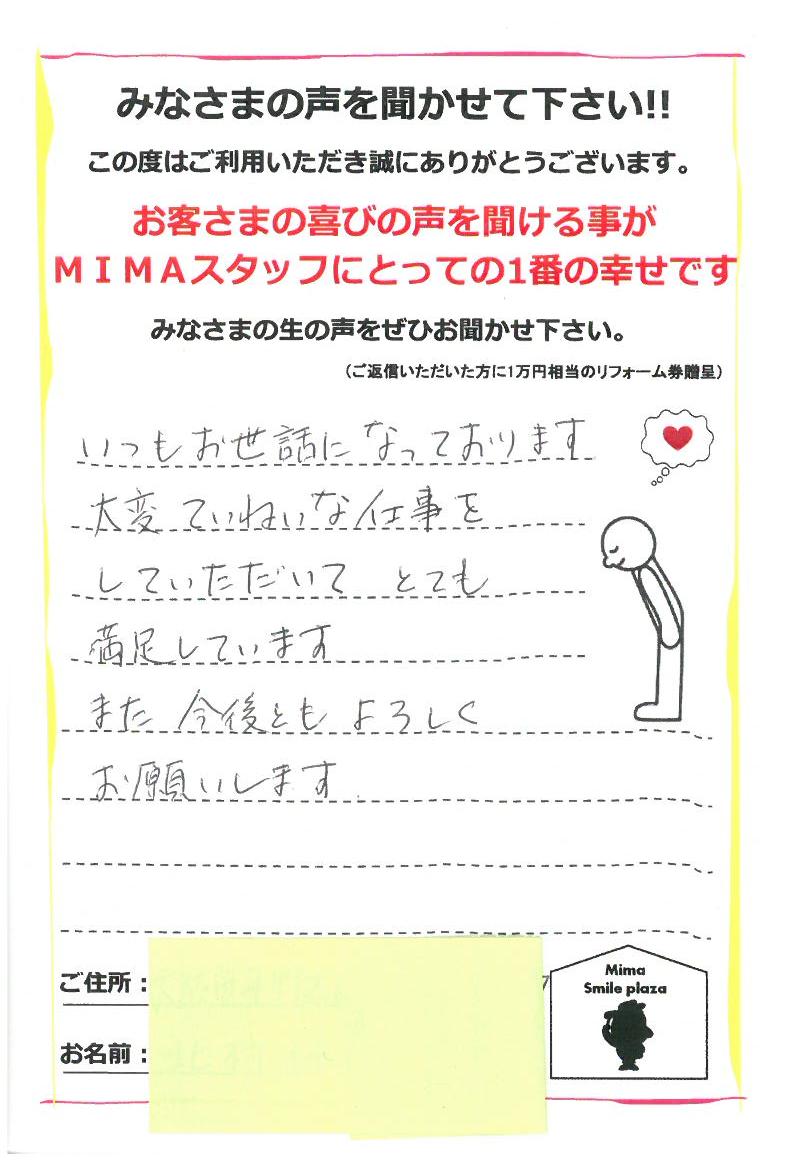 みなさまの声を聞かせて下さい!!
この度はご利用いただき誠にありがとうございます。
お客さまの喜びの声を聞ける事が
ＭＩＭＡスタッフにとっての1番の幸せです
みなさまの生の声をぜひお聞かせ下さい。
（ご返信いただいた方に1万円相当のリフォーム券贈呈）
いつもお世話になっております
大変ていねいな仕事を
していただいて とても
満足しています
また 今後とも よろしく
お願いします.
ご住所：
7
お名前：
Mima
Smile plaza